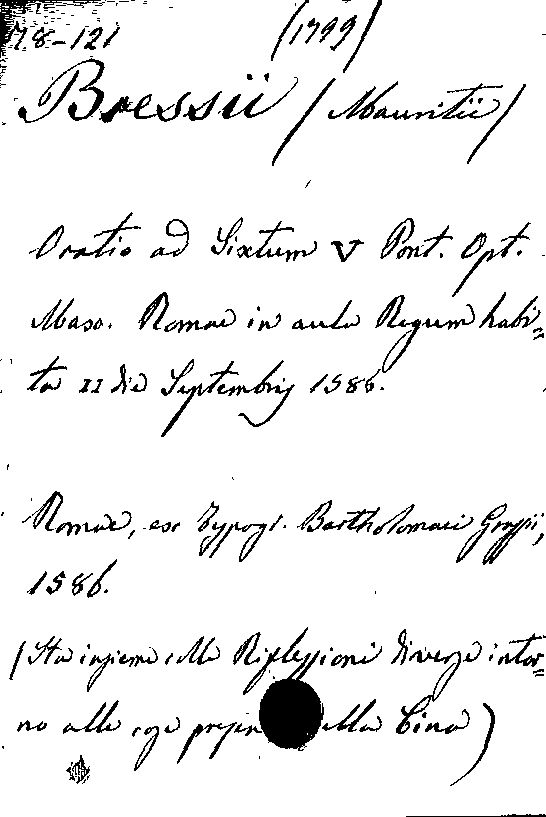 78-121 (1799)
Bressii (Mauritii)
Oratio ad Sixtum V Pont. Opt.
Max. Romae in aula Regum habi=
ta II die Septembris 1586.
Romae, ex Typogr. Bartholomaei Grassii,
1586.
(Sta insieme colle Riflessioni diverse intor=
no alle cose presen ella Cina)